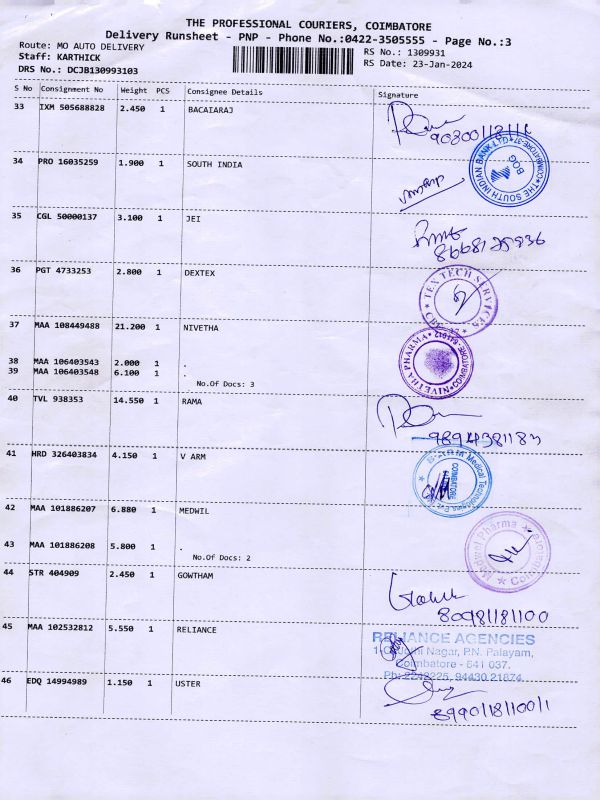 THE PROFESSIONAL COURIERS, COIMBATORE
Delivery Runsheet - PNP - Phone No.:0422-3505555 - Page No.:3
Route: MO AUTO DELIVERY
RS No.: 1309931
Staff: KARTHICK
RS Date: 23-Jan-2024
DRS No.: DCJB130993103
S No Consignment No Weight PCS Consignee Details Signature
33 IXM 505688828 2.450 1 BACAIARAJ
34 PRO 16035259 1.900 1 SOUTH INDIA
THE SOUTH INDIAN BANK LTD COIMBATORE-37
BOG
35 CGL 50000137 3.100 1 JEI
36 PGT 4733253 2.800 1 DEXTEX
TEX TECH SERVICES
37 MAA 108449488 21.200 1 NIVETHA
NIVETHA PHARMA COIMBATORE-641012
38 MAA 106403543 2.000 1 .
39 MAA 106403548 6.100 1 .
No.Of Docs: 3
40 TVL 938353 14.550 1 RAMA
9894381183
41 HRD 326403834 4.150 1 V ARM
Medical Technologies
COIMBATORE
42 MAA 101886207 6.880 1 MEDWIL
Medwil Pharma Coimbatore
43 MAA 101886208 5.800 1 .
No.Of Docs: 2
44 STR 404909 2.450 1 GOWTHAM
80981181100
45 MAA 102532812 5.550 1 RELIANCE
RELIANCE AGENCIES
Nagar, P.N. Palayam,
Coimbatore - 641 037.
Ph: 2243225, 94430 21874
46 EDQ 14994989 1.150 1 USTER